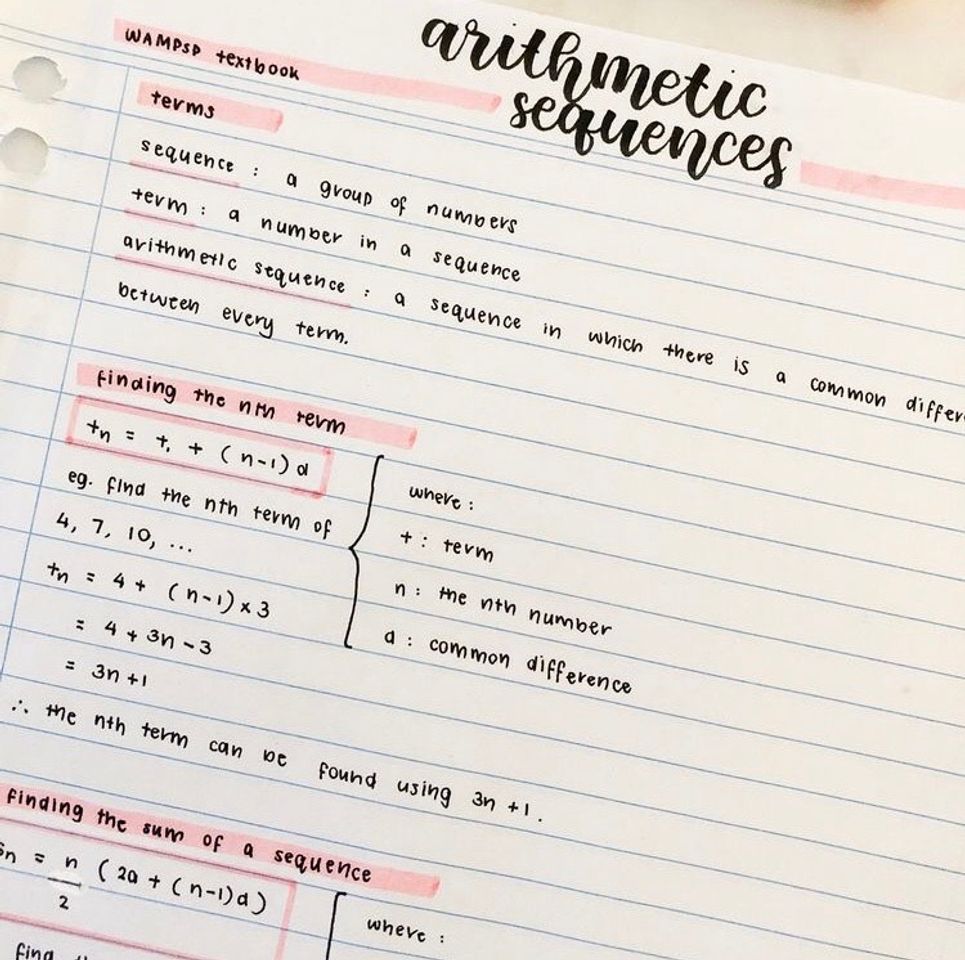 arithmetic
sequences
WAMPSP textbook
terms
sequence : a group of numbers
term : a number in a sequence
arithmetic sequence : a sequence in which there is a common differ
between every term.
finding the nth term
tn = t1 + (n-1)d
eg. find the nth term of
4, 7, 10, ...
tn = 4 + (n-1) × 3
= 4 + 3n - 3
= 3n +1
∴ the nth term can be found using 3n +1.
where :
t : term
n : the nth number
d : common difference
finding the sum of a sequence
Sn = n/2 (2a + (n-1)d)
where :
find